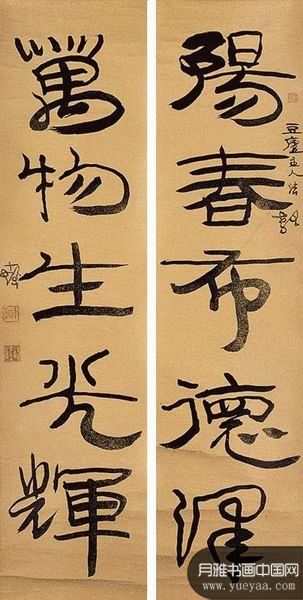 陽春布德澤
萬物生光輝
月雅书画中国网
www.yueyaa.com